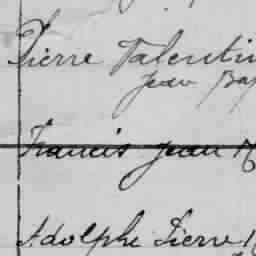 Pierre Valentin
Jean Bap
Francis Jean M
Adolphe Pierre